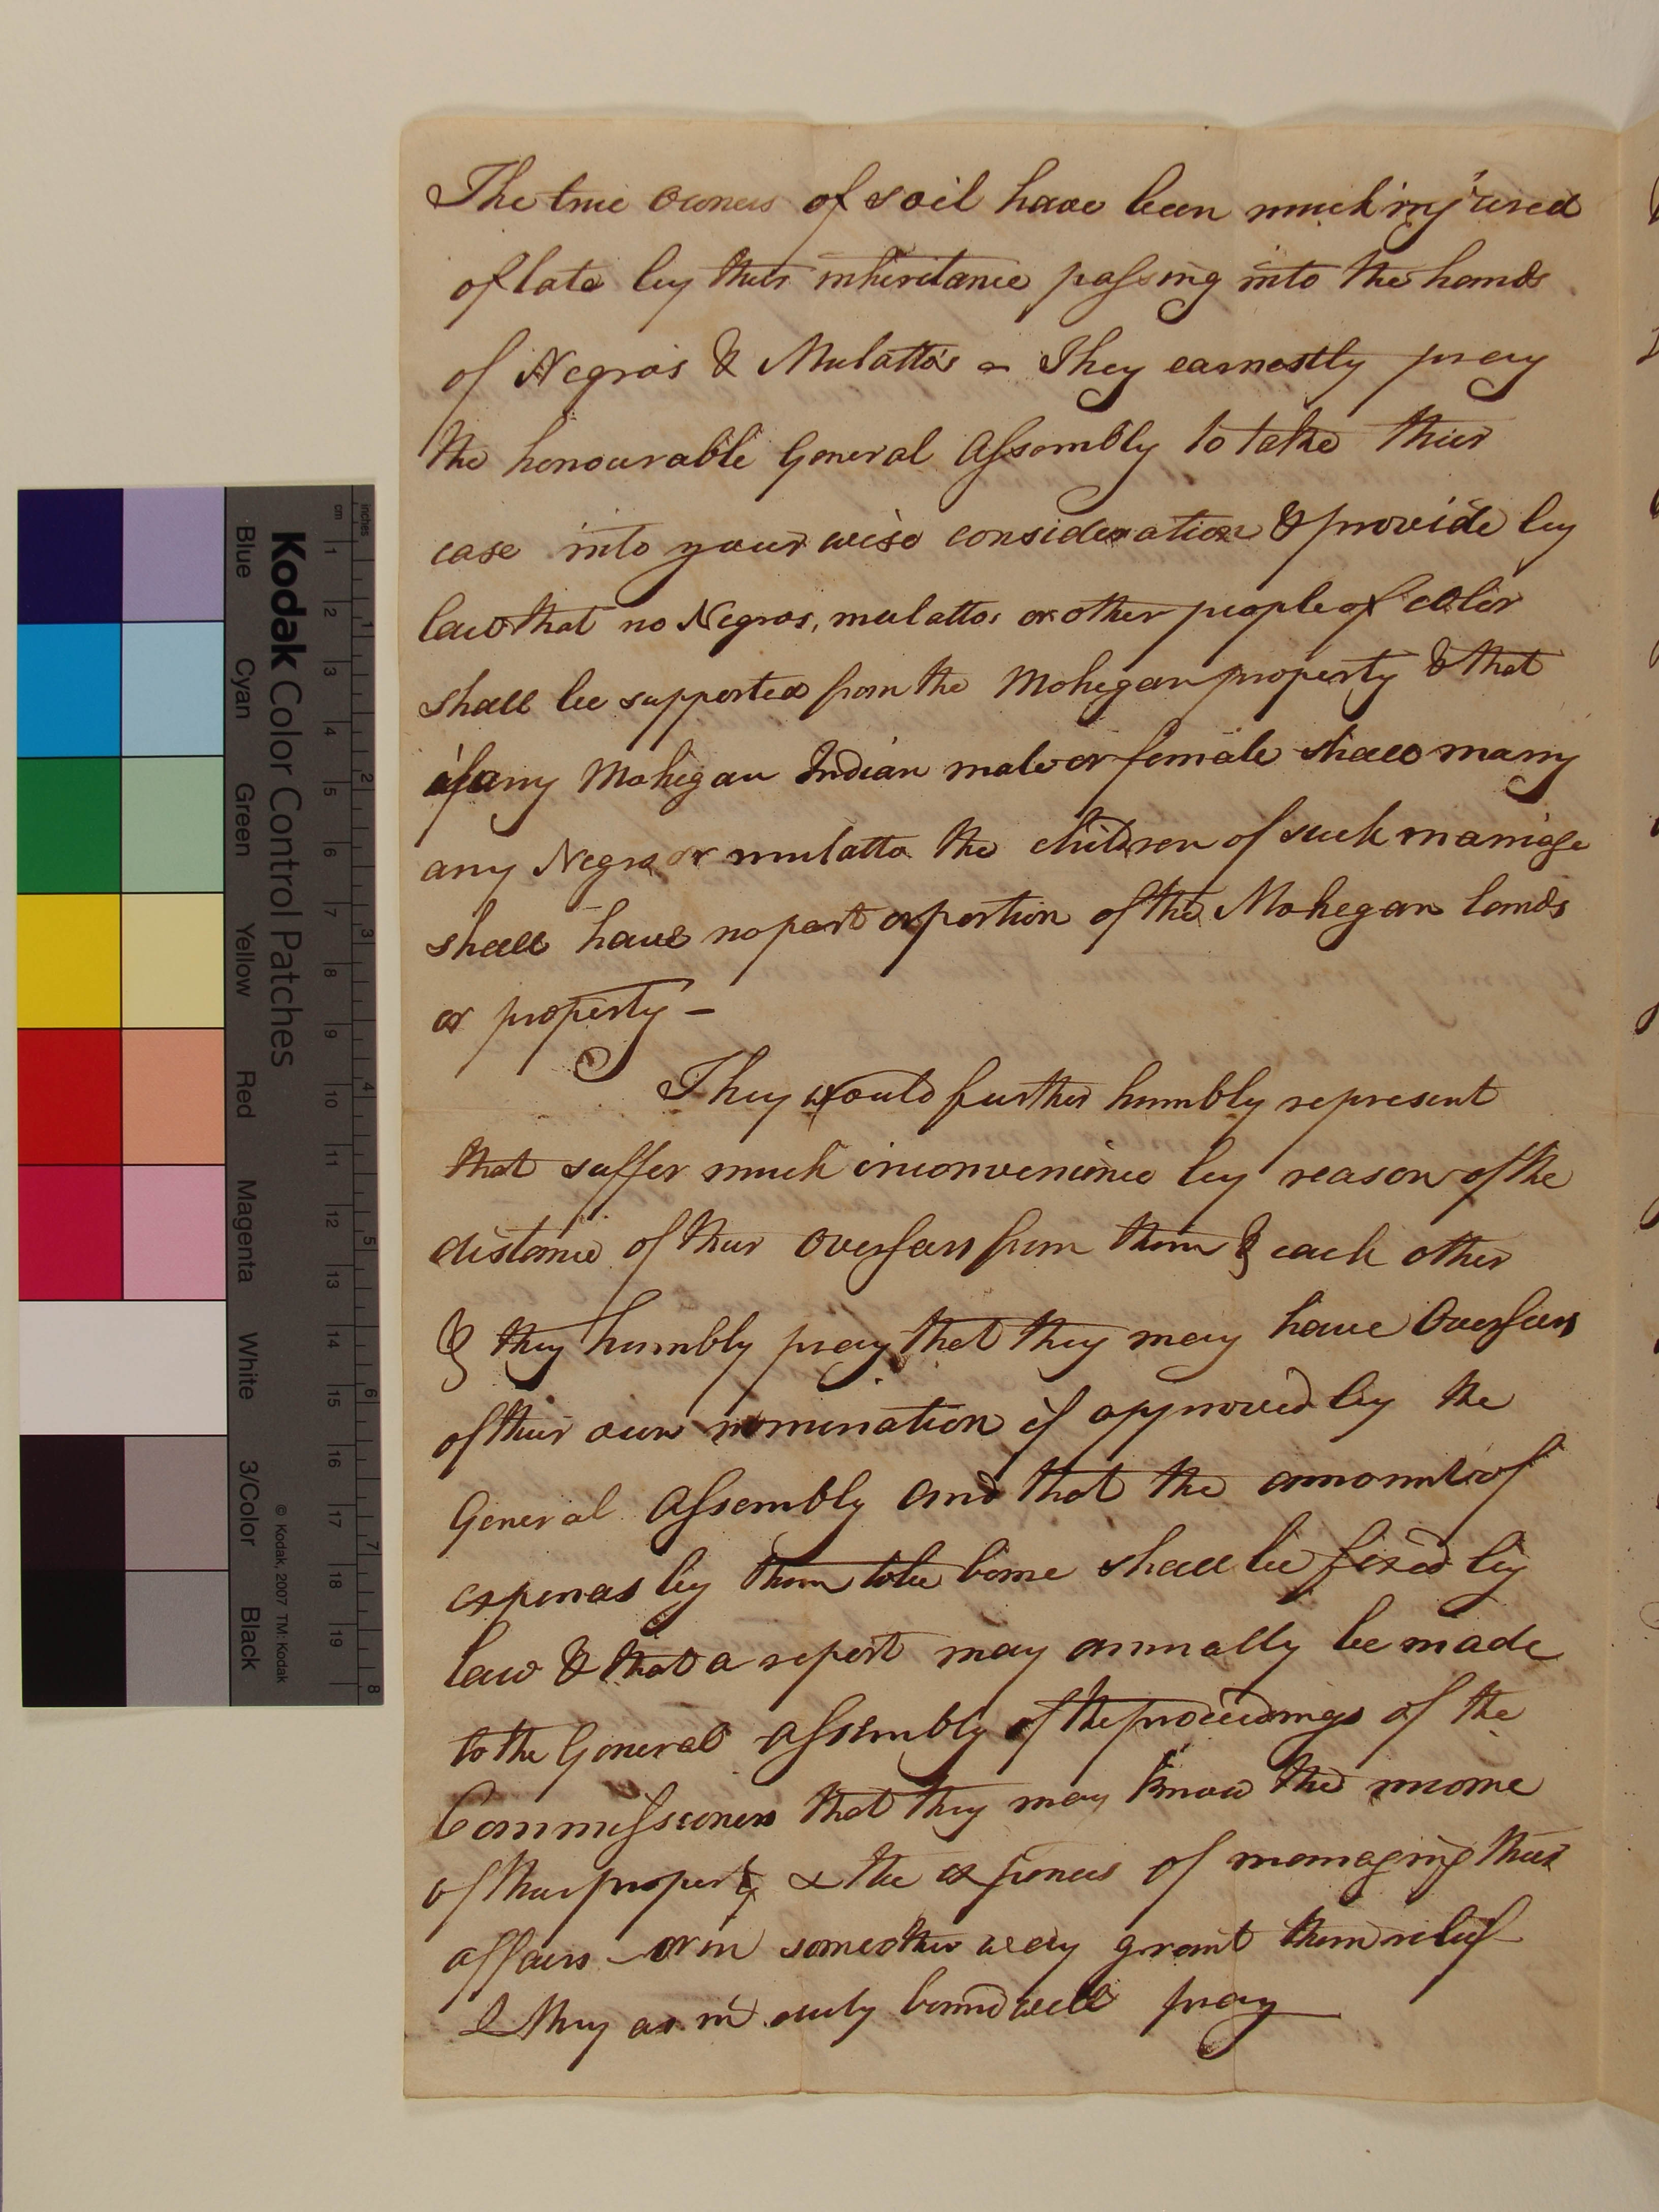 The true owners of soil have been much injured
of late by their inheritance passing into the hands
of Negros & Mulatto's - They earnestly pray
the honourable General Assembly to take thier
case into your wise consideration & provide by
law that no Negros, mulattos or other people of color
shall be supported from the Mohegan property & that
if any Mohegan Indian male or female shall marry
any Negro or mulatto the children of such marriage
shall have no part or portion of the Mohegan lands
or property -
They would further humbly represent
that suffer much inconvenience by reason of the
distance of their Overseers from them & each other
& they humbly pray that they may have Overseers
of their own nomination if approved by the
General Assembly and that the amount of
expenses by them to be borne shall be fixed by
law & that a report may annually be made
to the General Assembly of the proceedings of the
Commissioners that they may know the income
of their property & the expences of managing their
affairs - or in some other way grant them relief
& they as in duty bound will pray
Kodak Color Control Patches
Blue Cyan Green Yellow Red Magenta White 3/Color Black
© Kodak, 2007 TM: Kodak
inches 1 2 3 4 5 6 7 8
cm 1 2 3 4 5 6 7 8 9 10 11 12 13 14 15 16 17 18 19